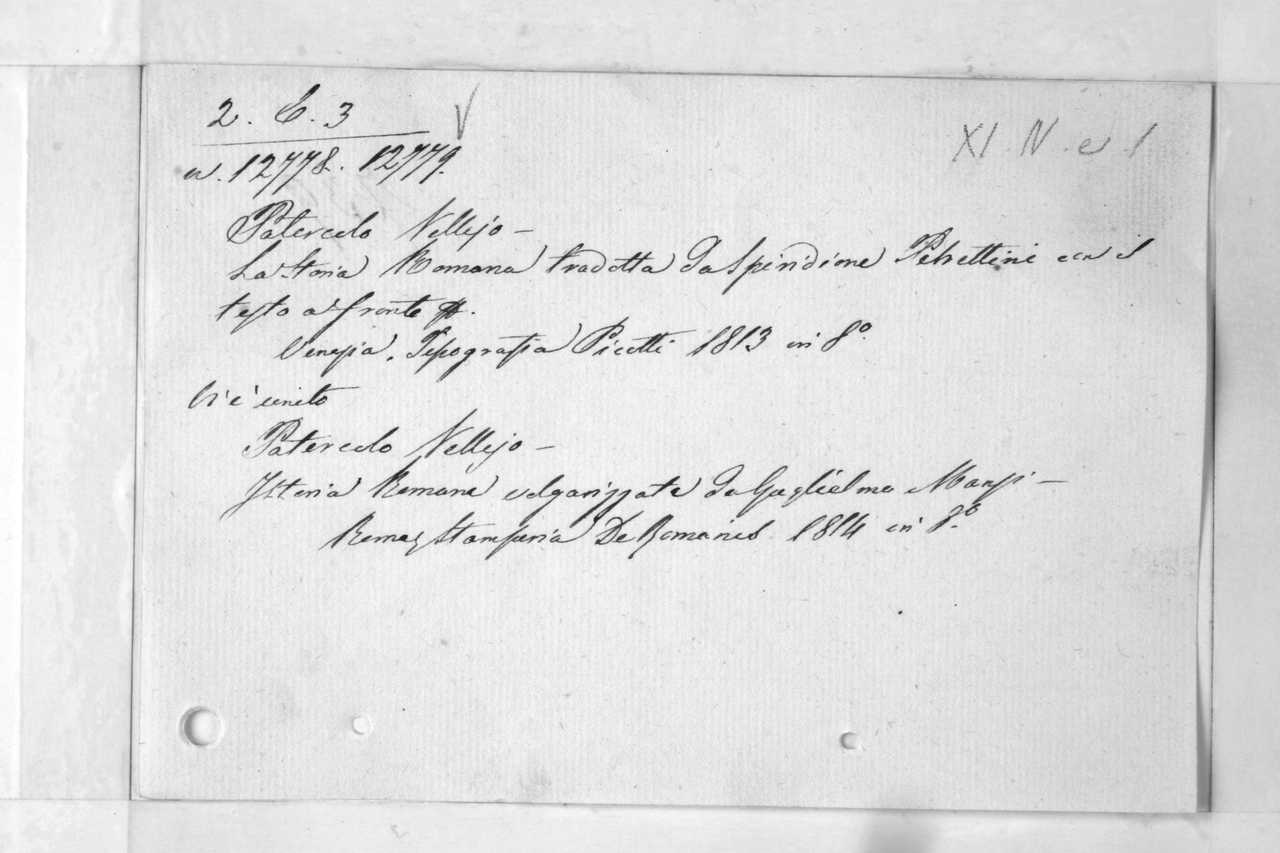 2. E. 3 V
XI. N. e 1
n. 12778. 12779.
Patercolo Vellejo –
La Storia Romana tradotta da Spiridione Petrettini con il
testo a fronte
Venezia, Tipografia Picotti 1813 in 8.º
Vi è unito
Patercolo Vellejo –
Istoria Romana volgarizzata da Guglielmo Manzi –
Roma, Stamperia De Romanis 1814 in 8.º